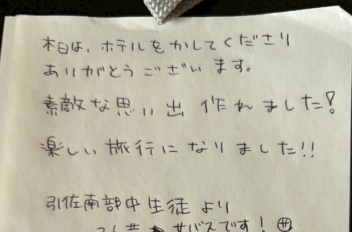 本日は、ホテルをかしてくださり
ありがとうございます。
素敵な思い出 作れました!
楽しい旅行になりました!!
引佐南部中生徒より
サバスです!